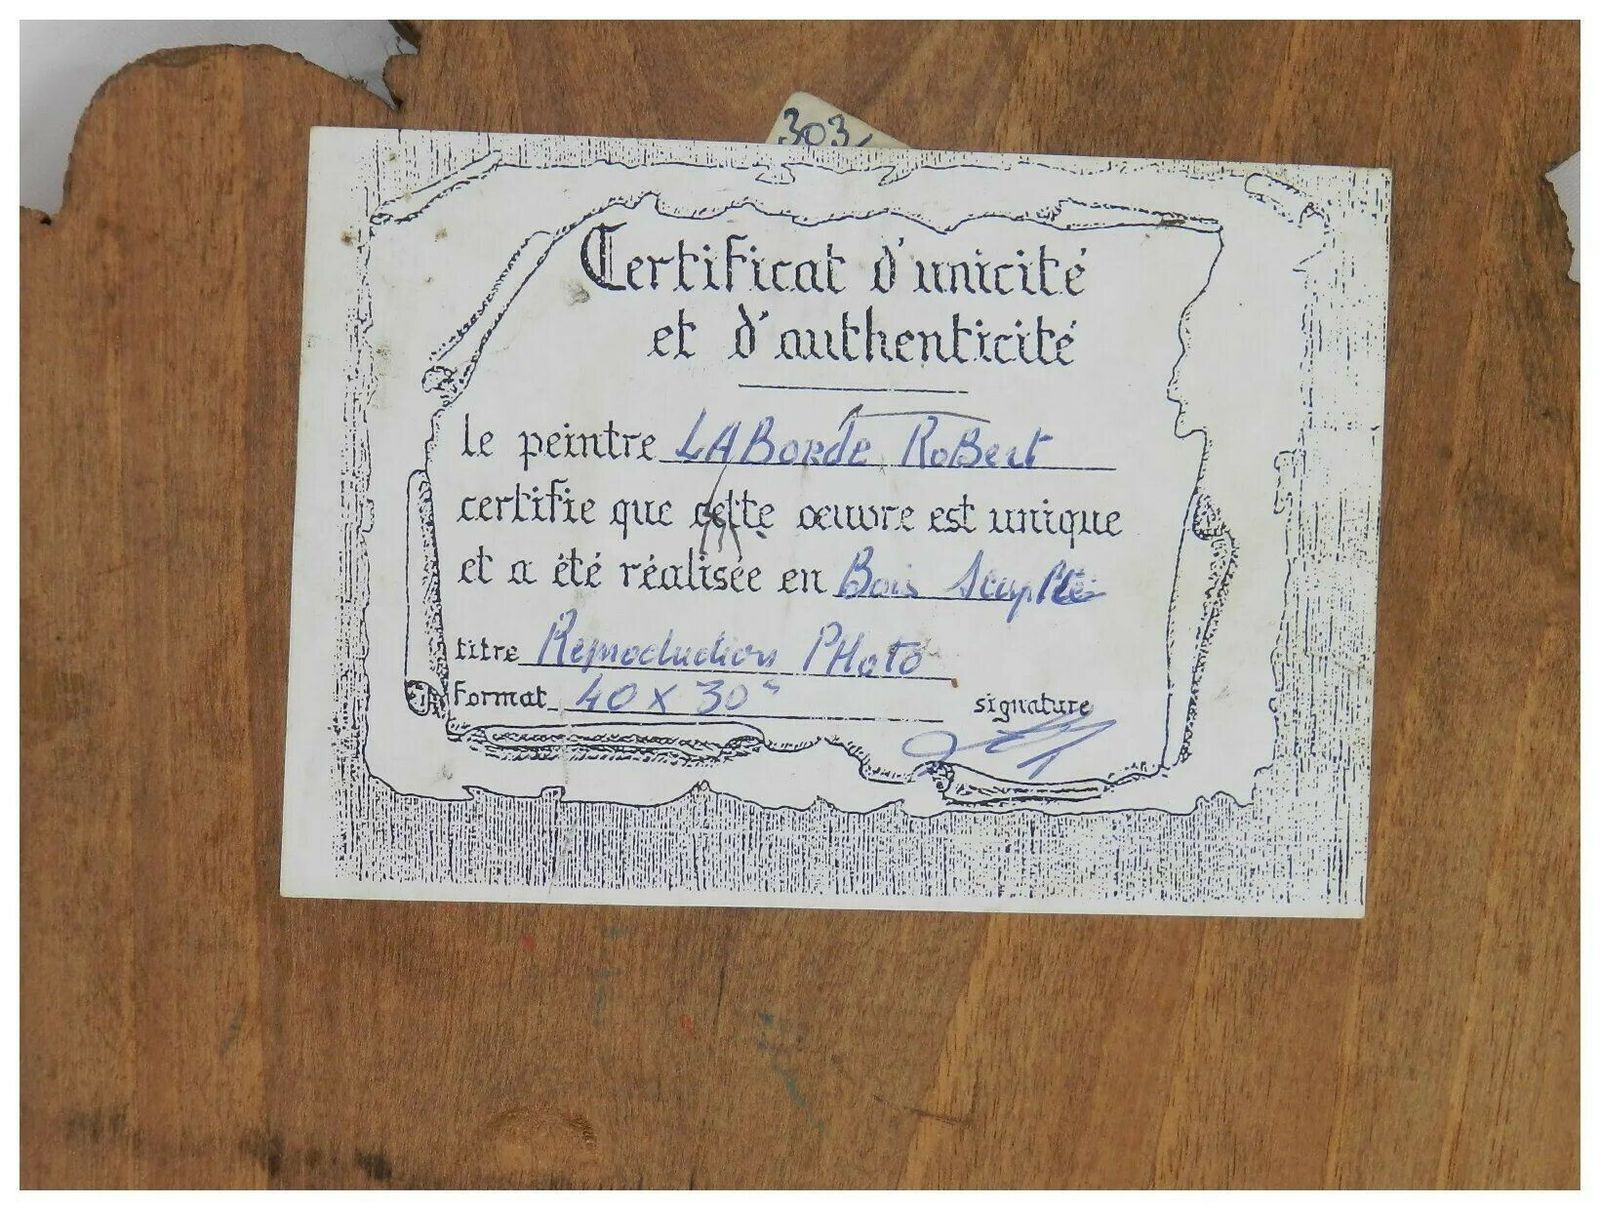 303
Certificat d'unicité
et d'authenticité
le peintre LABorde RoBert
certifie que cette oeuvre est unique
et a été réalisée en Bois Sculpté
titre Reproduction PHoto
Format 40 x 30
signature